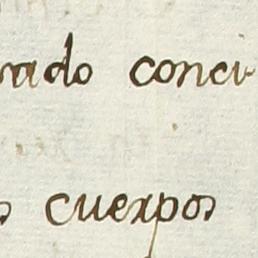 rado conci
s cuerpos